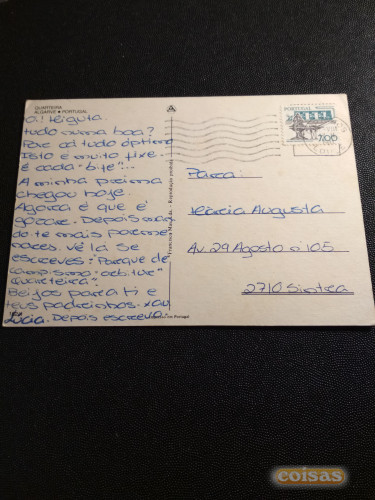 QUARTEIRA
ALGARVE • PORTUGAL
Oi! Leiguta
tudo numa boa?
Por cá tudo óptimo
Isto é muito fixe.
é cada "bife"...
A minha prima
chegou hoje.
Agora é que é
gozar. Depois man
do-te mais pormeno
nores. Vê lá se
escreves: "Parque de
campismo orbitur"
Quarteira".
Beijos para ti e
teus padrinhos. xau
Lúcia. Depois escrevo.
Francisco Mas
Reprodução proibida
em Portugal
7.00
Para:
Augusta
Av. 29 Agosto nº 105
2710 Sintra
coisas